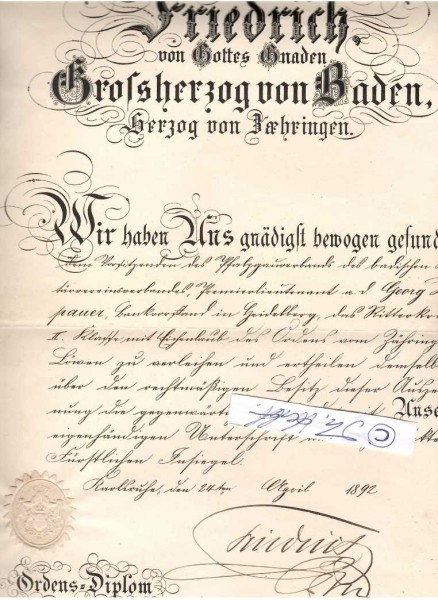 Friedrich,
von Gottes Gnaden
Grossherzog von Baden,
Herzog von Zæhringen.
Wir haben Uns gnädigst bewogen gefund
dem Vorsitzenden des Pfalzgauverbands des badischen
Premierlieutenant a. d. Georg
pauer, Bankvorstand in Heidelberg, das Ritterkr
II. Klasse mit Eichenlaub des Ordens vom Zähring
Löwen zu verleihen und ertheilen demselb
über den rechtmäßigen Besitz dieser Ausze
nung die gegenwärt mit Unse
eigenhändigen Unterschrift
Fürstlichen Insiegel.
Karlsruhe, den 24ten April 1892
Friedrich
Ordens-Diplom
©